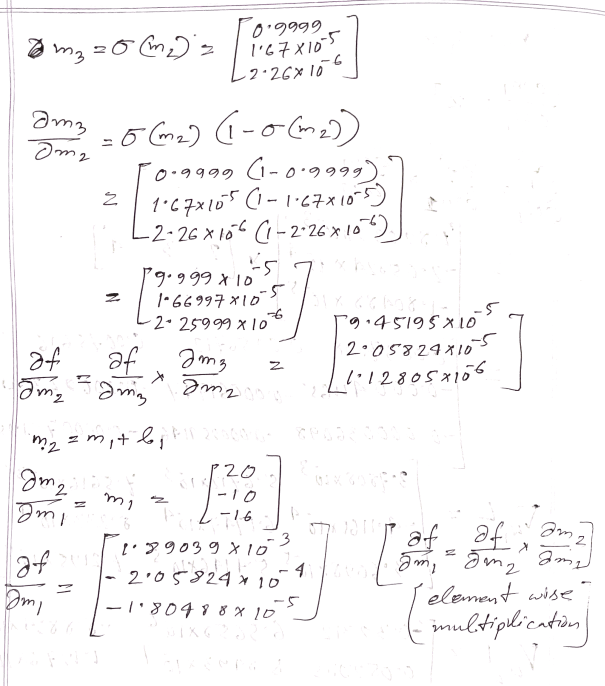 m₃ = σ(m₂) = [0.9999
1.67×10⁻⁵
2.26×10⁻⁶]
∂m₃/∂m₂ = σ(m₂) (1-σ(m₂))
= [0.9999 (1-0.9999)
1.67×10⁻⁵ (1-1.67×10⁻⁵)
2.26×10⁻⁶ (1-2.26×10⁻⁶)]
= [9.999×10⁻⁵
1.66997×10⁻⁵
2.25999×10⁻⁶]
∂f/∂m₂ = ∂f/∂m₃ × ∂m₃/∂m₂ = [9.45195×10⁻⁵
2.05824×10⁻⁵
1.12805×10⁻⁶]
m₂ = m₁ + b₁
∂m₂/∂m₁ = m₁ = [20
-10
-16]
∂f/∂m₁ = [1.89039×10⁻³
-2.05824×10⁻⁴
-1.80488×10⁻⁵]
[∂f/∂m₁ = ∂f/∂m₂ × ∂m₂/∂m₁]
[element wise
multiplication]